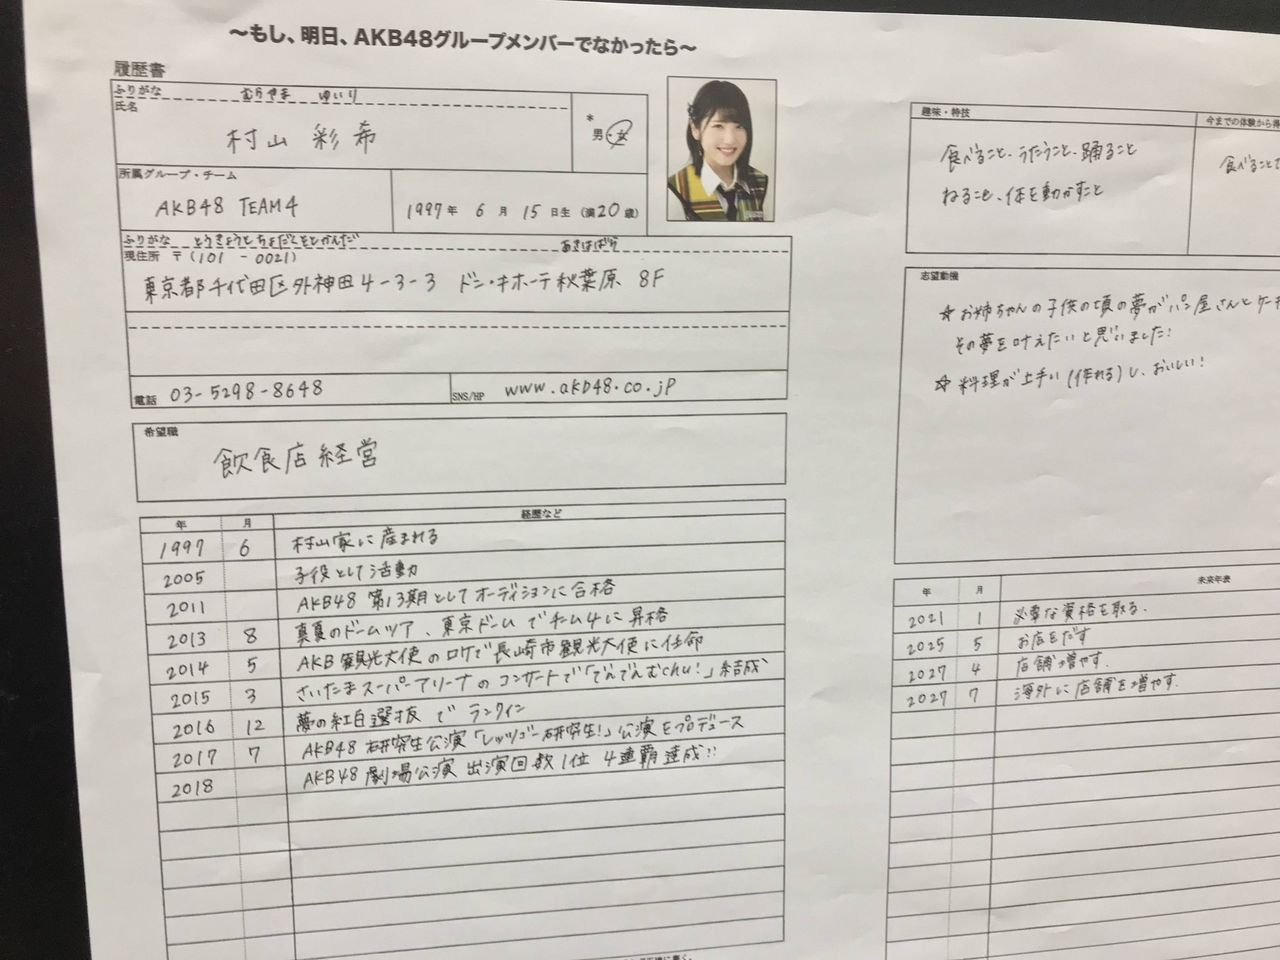 ～もし、明日、AKB48グループメンバーでなかったら～
履歴書
ふりがな むらやま ゆいり
氏名
村山 彩希
*
男・女
所属グループ・チーム
AKB48 TEAM4
1997年 6月 15日生（満20歳）
ふりがな とうきょうとちよだくそとかんだ あきはばら
現住所 〒（101 - 0021）
東京都千代田区外神田4-3-3 ドン・キホーテ秋葉原 8F
電話 03-5298-8648
SNS/HP www.akb48.co.jp
希望職
飲食店経営
年 月 経歴など
1997 6 村山家に産まれる
2005 子役として活動
2011 AKB48 第13期としてオーディションに合格
2013 8 真夏のドームツア、東京ドームでチーム4に昇格
2014 5 AKB観光大使のロケで長崎市観光大使に任命
2015 3 さいたまスーパーアリーナのコンサートで「でんでんむchu!」結成
2016 12 夢の紅白選抜でランクイン
2017 7 AKB48 研究生公演「レッツゴー研究生!」公演をプロデュース
2018 AKB48 劇場公演 出演回数1位 4連覇達成!!
趣味・特技
食べること、うたうこと、踊ること
ねること、体を動かすこと
今までの体験から得
食べることで
志望動機
☆お姉ちゃんの子供の頃の夢がパン屋さんとケーキ
その夢を叶えたいと思いました!
☆料理が上手い(作れる)し、おいしい!
年 月 未来年表
2021 1 必要な資格を取る.
2025 5 お店をだす
2027 4 店舗増やす.
2027 7 海外に店舗を増やす.